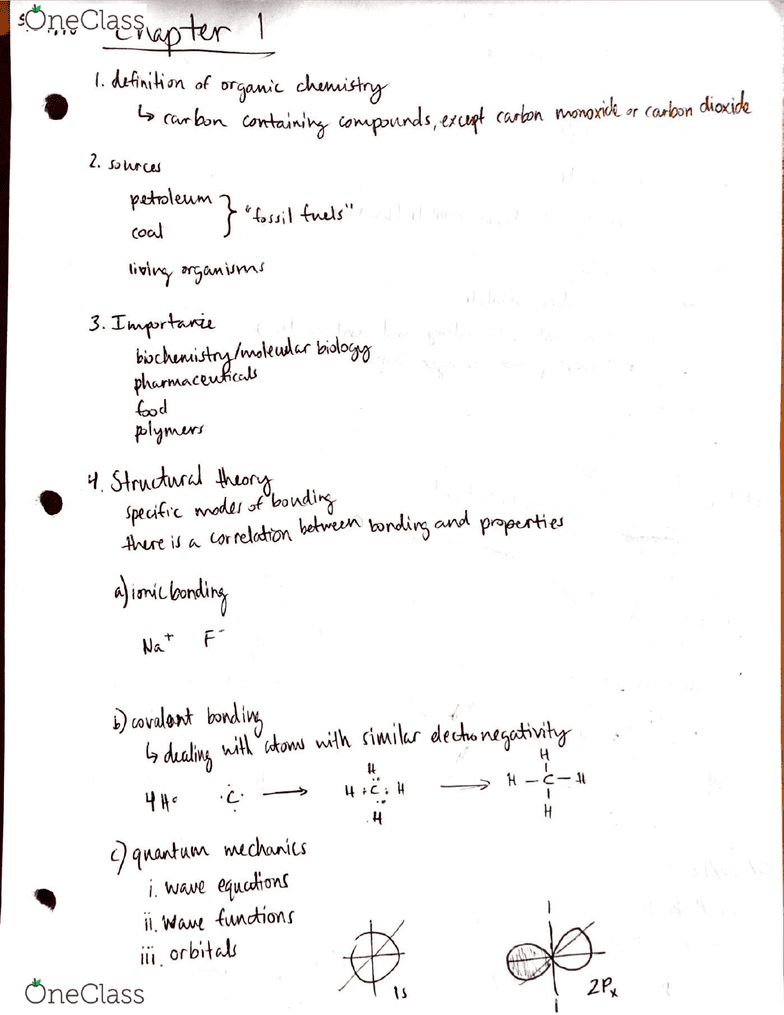 OneClass
Chapter 1
1. definition of organic chemistry
↳ carbon containing compounds, except carbon monoxide or carbon dioxide
2. sources
petroleum } "fossil fuels"
coal
living organisms
3. Importance
biochemistry/molecular biology
pharmaceuticals
food
polymers
4. Structural theory
specific modes of bonding
there is a correlation between bonding and properties
a) ionic bonding
Na⁺ F⁻
b) covalent bonding
↳ dealing with atoms with similar electronegativity
H H
4H• ·C· → H:C:H → H–C–H
H H
c) quantum mechanics
i. wave equations
ii. wave functions
iii. orbitals
1s 2Px
OneClass